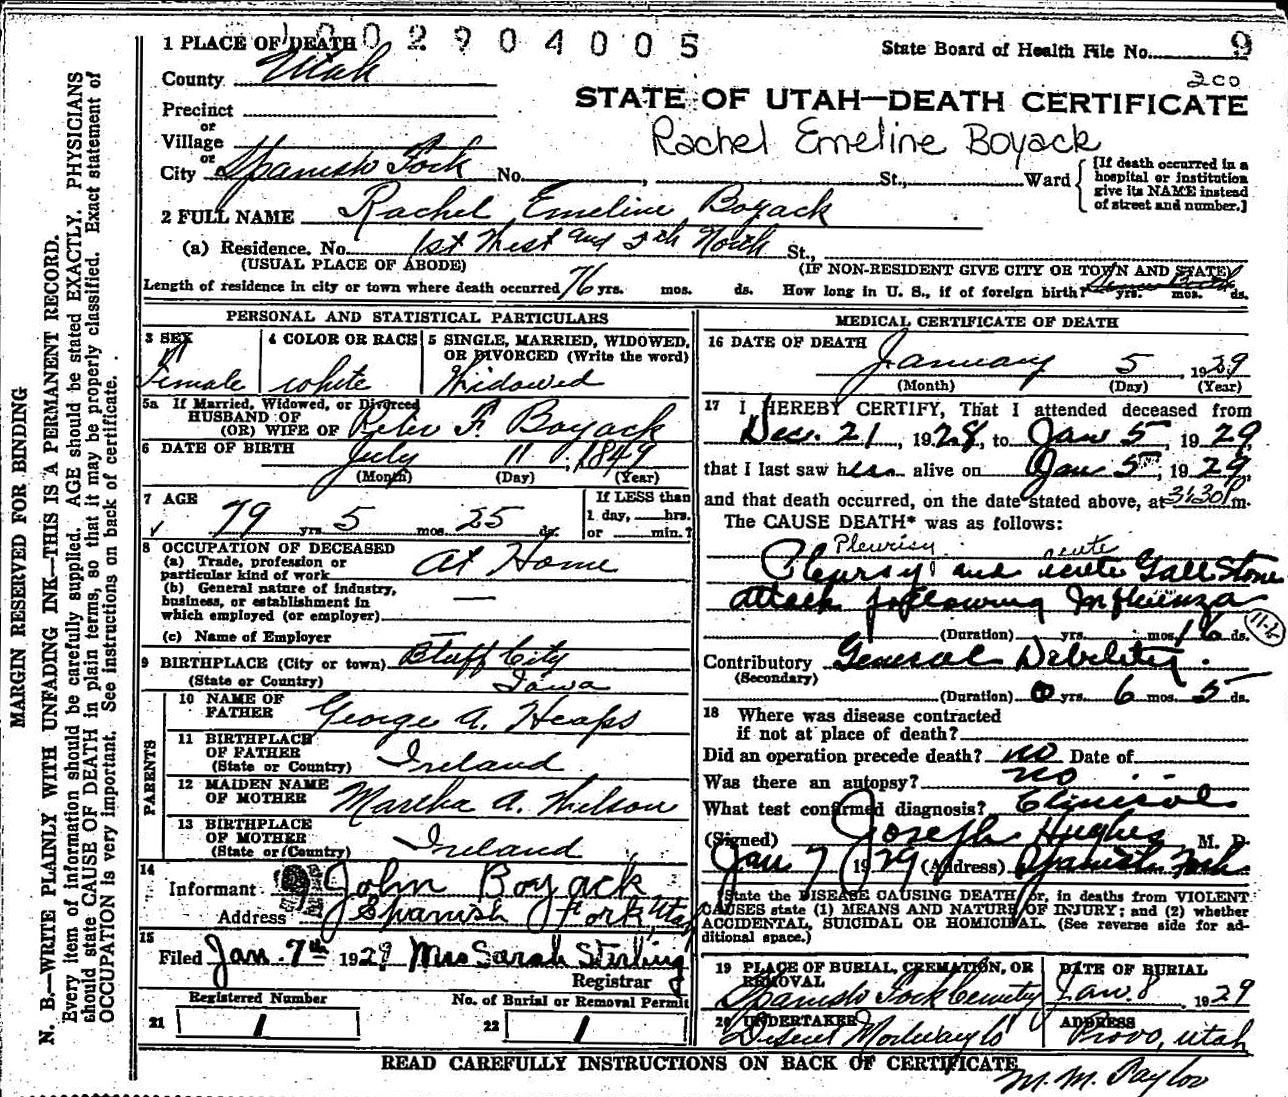 1002904005
State Board of Health File No. 9
200
1 PLACE OF DEATH
County Utah
STATE OF UTAH—DEATH CERTIFICATE
Precinct
or
Village
Rachel Emeline Boyack
or
City Spanish Fork No. , St., Ward
[If death occurred in a
hospital or institution
give its NAME instead
of street and number.]
2 FULL NAME Rachel Emeline Boyack
(a) Residence. No. 1st West and 5th North St.,
(USUAL PLACE OF ABODE) (IF NON-RESIDENT GIVE CITY OR TOWN AND STATE)
Length of residence in city or town where death occurred 76 yrs. mos. ds. How long in U. S., if of foreign birth? yrs. mos. ds.
PERSONAL AND STATISTICAL PARTICULARS
3 SEX 4 COLOR OR RACE 5 SINGLE, MARRIED, WIDOWED, OR DIVORCED (Write the word)
Female white Widowed
5a If Married, Widowed, or Divorced
HUSBAND OF
(OR) WIFE OF Peter F. Boyack
6 DATE OF BIRTH July 11, 1849
(Month) (Day) (Year)
7 AGE If LESS than
79 yrs 5 mos. 25 ds. 1 day, hrs.
or min.?
8 OCCUPATION OF DECEASED
(a) Trade, profession or
particular kind of work At Home
(b) General nature of industry,
business, or establishment in
which employed (or employer) —
(c) Name of Employer
9 BIRTHPLACE (City or town) Bluff City
(State or Country) Iowa
PARENTS
10 NAME OF
FATHER George A. Heaps
11 BIRTHPLACE
OF FATHER
(State or Country) Ireland
12 MAIDEN NAME
OF MOTHER Martha A. Wilson
13 BIRTHPLACE
OF MOTHER
(State or Country) Ireland
14
Informant John Boyack
Address Spanish Fork, Utah
15
Filed Jan. 7th 1929 Mrs Sarah Stirling
Registrar
Registered Number No. of Burial or Removal Permit
21 1 22 1
MEDICAL CERTIFICATE OF DEATH
16 DATE OF DEATH
January 5, 1929
(Month) (Day) (Year)
17 I HEREBY CERTIFY, That I attended deceased from
Dec. 21, 1928, to Jan 5, 1929
that I last saw her alive on Jan 5th, 1929,
and that death occurred, on the date stated above, at 3:30 P m.
The CAUSE DEATH* was as follows:
Pleurisy acute
Pleursy and acute Gall Stone
attack following Influenza
11-b
(Duration) yrs. mos. 16 ds.
Contributory General Debility.
(Secondary)
(Duration) 0 yrs. 6 mos. 5 ds.
18 Where was disease contracted
if not at place of death?
Did an operation precede death? no Date of
Was there an autopsy? no
What test confirmed diagnosis? Clinical
(Signed) Joseph Hughes M. D.
Jan 7 1929 (Address) Spanish Fork
*State the DISEASE CAUSING DEATH or, in deaths from VIOLENT
CAUSES state (1) MEANS AND NATURE OF INJURY; and (2) whether
ACCIDENTAL, SUICIDAL OR HOMICIDAL. (See reverse side for ad-
ditional space.)
19 PLACE OF BURIAL, CREMATION, OR REMOVAL DATE OF BURIAL
Spanish Fork Cemetery Jan. 8, 1929
20 UNDERTAKER ADDRESS
Deseret Mortuary Co Provo, Utah
READ CAREFULLY INSTRUCTIONS ON BACK OF CERTIFICATE
M. M. Taylor
MARGIN RESERVED FOR BINDING
N. B.—WRITE PLAINLY WITH UNFADING INK—THIS IS A PERMANENT RECORD.
Every item of information should be carefully supplied. AGE should be stated EXACTLY. PHYSICIANS
should state CAUSE OF DEATH in plain terms, so that it may be properly classified. Exact statement of
OCCUPATION is very important. See instructions on back of certificate.